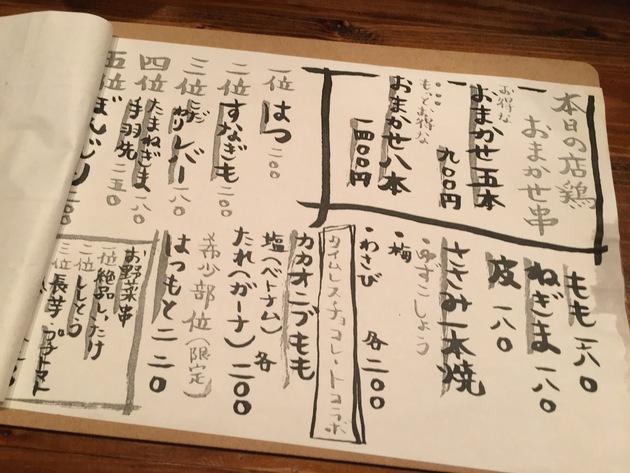 本日の店鶏
おまかせ串
お得な
おまかせ五本
九〇〇円
もっとお得な
おまかせ八本
一四〇〇円
一位
はつ二〇〇
二位
すなぎも二〇〇
三位
レバー一八〇
四位
たまねぎま一八〇
手羽先二五〇
五位
ぼんじり
もも一八〇
ねぎま一八〇
皮一八〇
ささみ一本焼
・ゆずこしょう
・梅
・わさび 各二〇〇
タイムレス・チョコレートコラボ
カカオニブもも
塩(ベトナム)各
たれ(ガーナ)二〇〇
希少部位(限定)
はつもと二二〇
お野菜串
一位 絶品しいたけ
二位 ししとう
三位 長芋